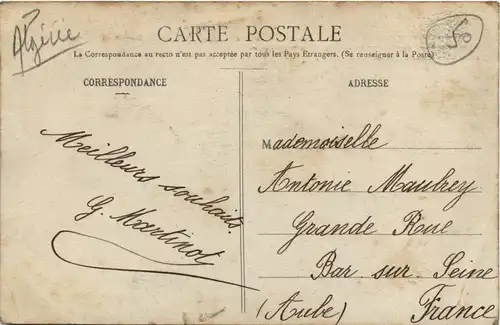 Algérie
CARTE POSTALE
La Correspondance au recto n'est pas acceptée par tous les Pays Etrangers. (Se renseigner à la Poste)
CORRESPONDANCE
Meilleurs souhaits.
G. Martinot
ADRESSE
Mademoiselle
Antonie Maubrey
Grande Rue
Bar sur Seine
(Aube) France